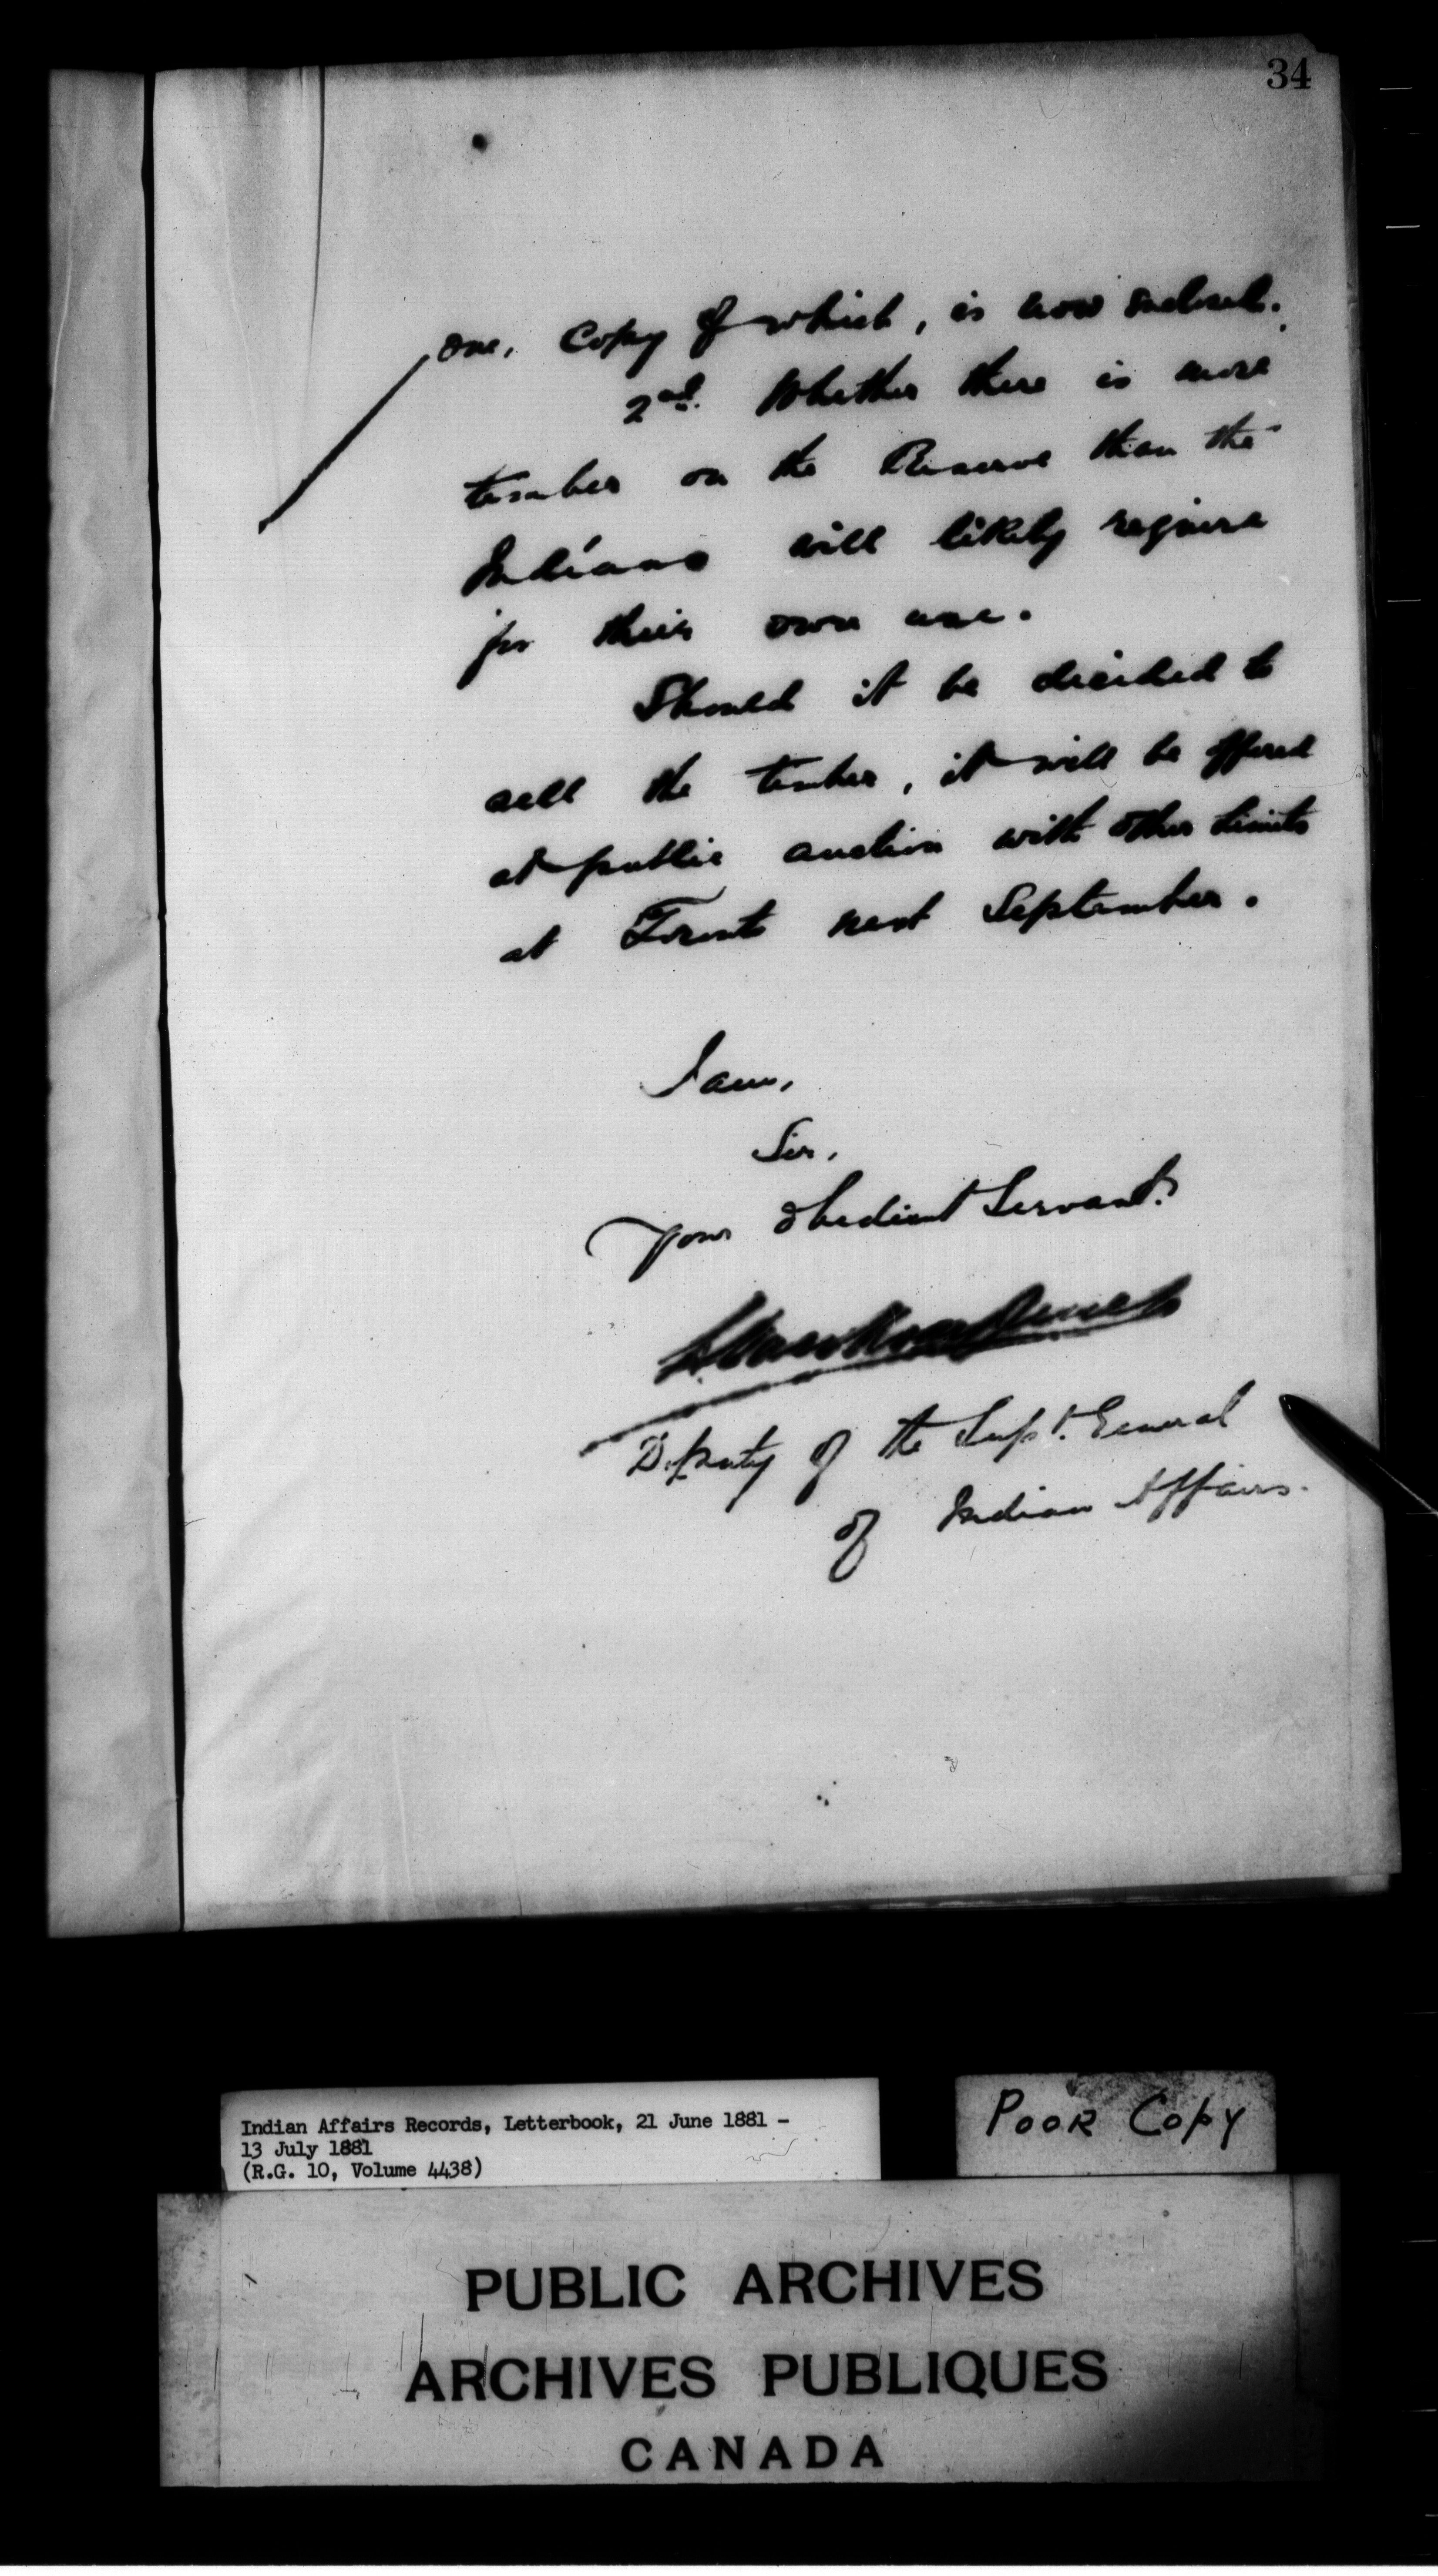 34
one, Copy of which, is now enclosed.
2nd. Whether there is more
timber on the Reserve than the
Indians will likely require
for their own use.
Should it be decided to
sell the timber, it will be offered
at public auction with other limits
at Toronto next September.
I am,
Sir,
Your obedient Servant.
Deputy of the Supt. General
of Indian Affairs.
Indian Affairs Records, Letterbook, 21 June 1881 -
13 July 1881
(R.G. 10, Volume 4438)
POOR COPY
PUBLIC ARCHIVES
ARCHIVES PUBLIQUES
CANADA